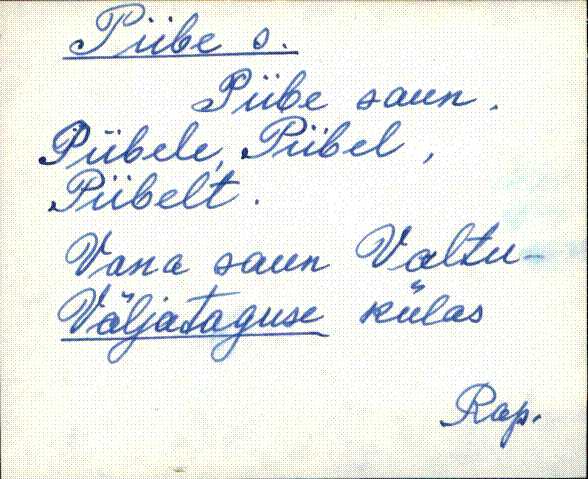 Piibe s.
Piibe saun.
Piibele, Piibel,
Piibelt.
Vana saun Valtu-
Väljataguse külas
Rap.